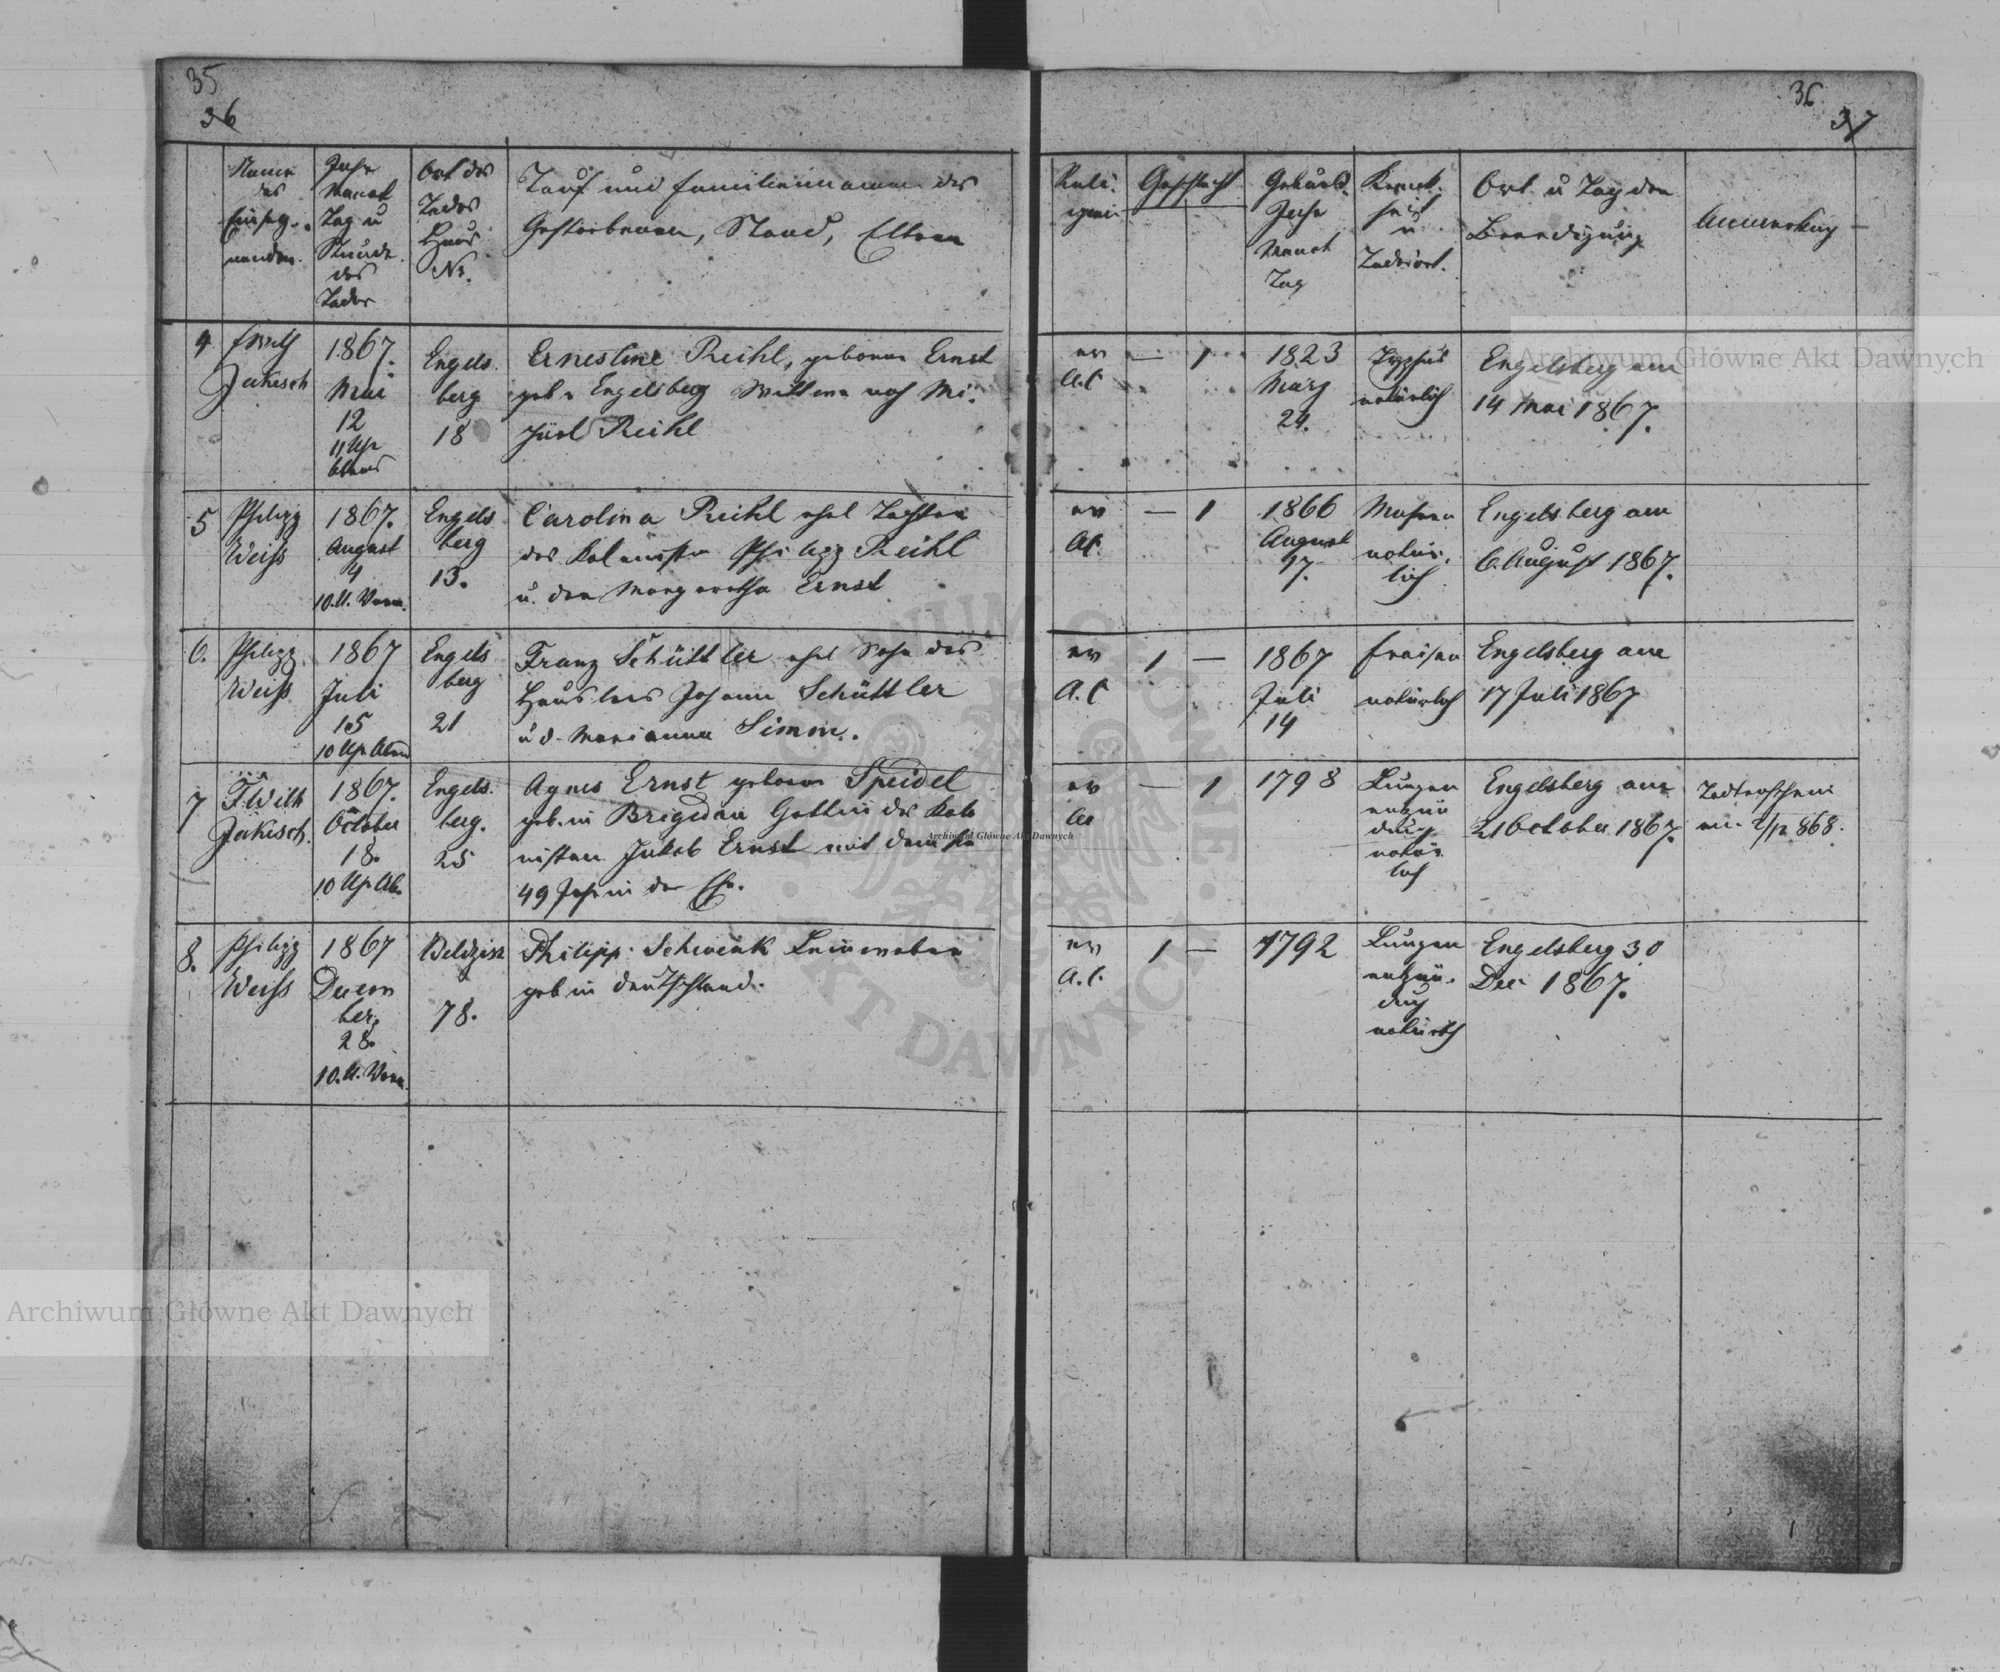 35
36
36
37
Name
des
Einseg-
nenden.
Jahr
Monat
Tag u
Stunde
des
Todes
Ort des
Todes
Haus
Nr.
Tauf und Familienname des
Gestorbenen, Stand, Eltern
Reli-
gion
Geschlecht
Geburts-
Jahr
Monat
Tag
Krank-
heit
u
Todesart.
Ort u Tag der
Beerdigung
Anmerkung
4
Jakisch
1867.
Mai
12
11 Uhr
Abends
Engels-
berg
18
Ernestine Reihl, geborne Ernst
geb. Engelsberg Wittwe nach Mi-
Reihl
ev
A.C
— 1
1823
März
24.
Typhus
natürlich
Engelsberg am
14 Mai 1867.
5
Philipp
Weiss
1867.
August
4
10.U. Vorm.
Engels
berg
13.
Carolina Reihl ehel Tochter
des Kolonisten Philipp Reihl
u. der Margaretha Ernst
ev
AC.
— 1
1866
August
27.
Masern
natür-
lich
Engelsberg am
6. August 1867.
6.
Philipp
Weiss
1867
Juli
15
10 Uhr Abend
Engels
berg
21
Franz Schüttler ehel Sohn des
Häuslers Johann Schüttler
u d. Marianna Simm.
ev
A.C
1 —
1867
Juli
14
Fraisen
natürlich
Engelsberg am
17 Juli 1867
7
F Wilh
Jakisch.
1867.
October
18.
10 Uhr Ab.
Engels-
berg.
25
Agnes Ernst geborne Speidel
geb. in Brigidau Gattin des Kolo
nisten Jakob Ernst mit dem sie
49 Jahr in der Ehe.
ev
— 1
1798
Lungen
entzün
dung
natür-
lich
Engelsberg am
21 October 1867.
Todtenschein
868.
8.
Philipp
Weiss
1867
Decem
ber.
28.
10.U. Vorm.
78.
Philipp Schwenk Leinweber
geb in Deutschland.
ev
A.C.
1 —
1792
Lungen
entzün-
dung
natürlich
Engelsberg 30
Dec. 1867.
Archiwum Główne Akt Dawnych
Archiwum Główne Akt Dawnych
Archiwum Główne Akt Dawnych